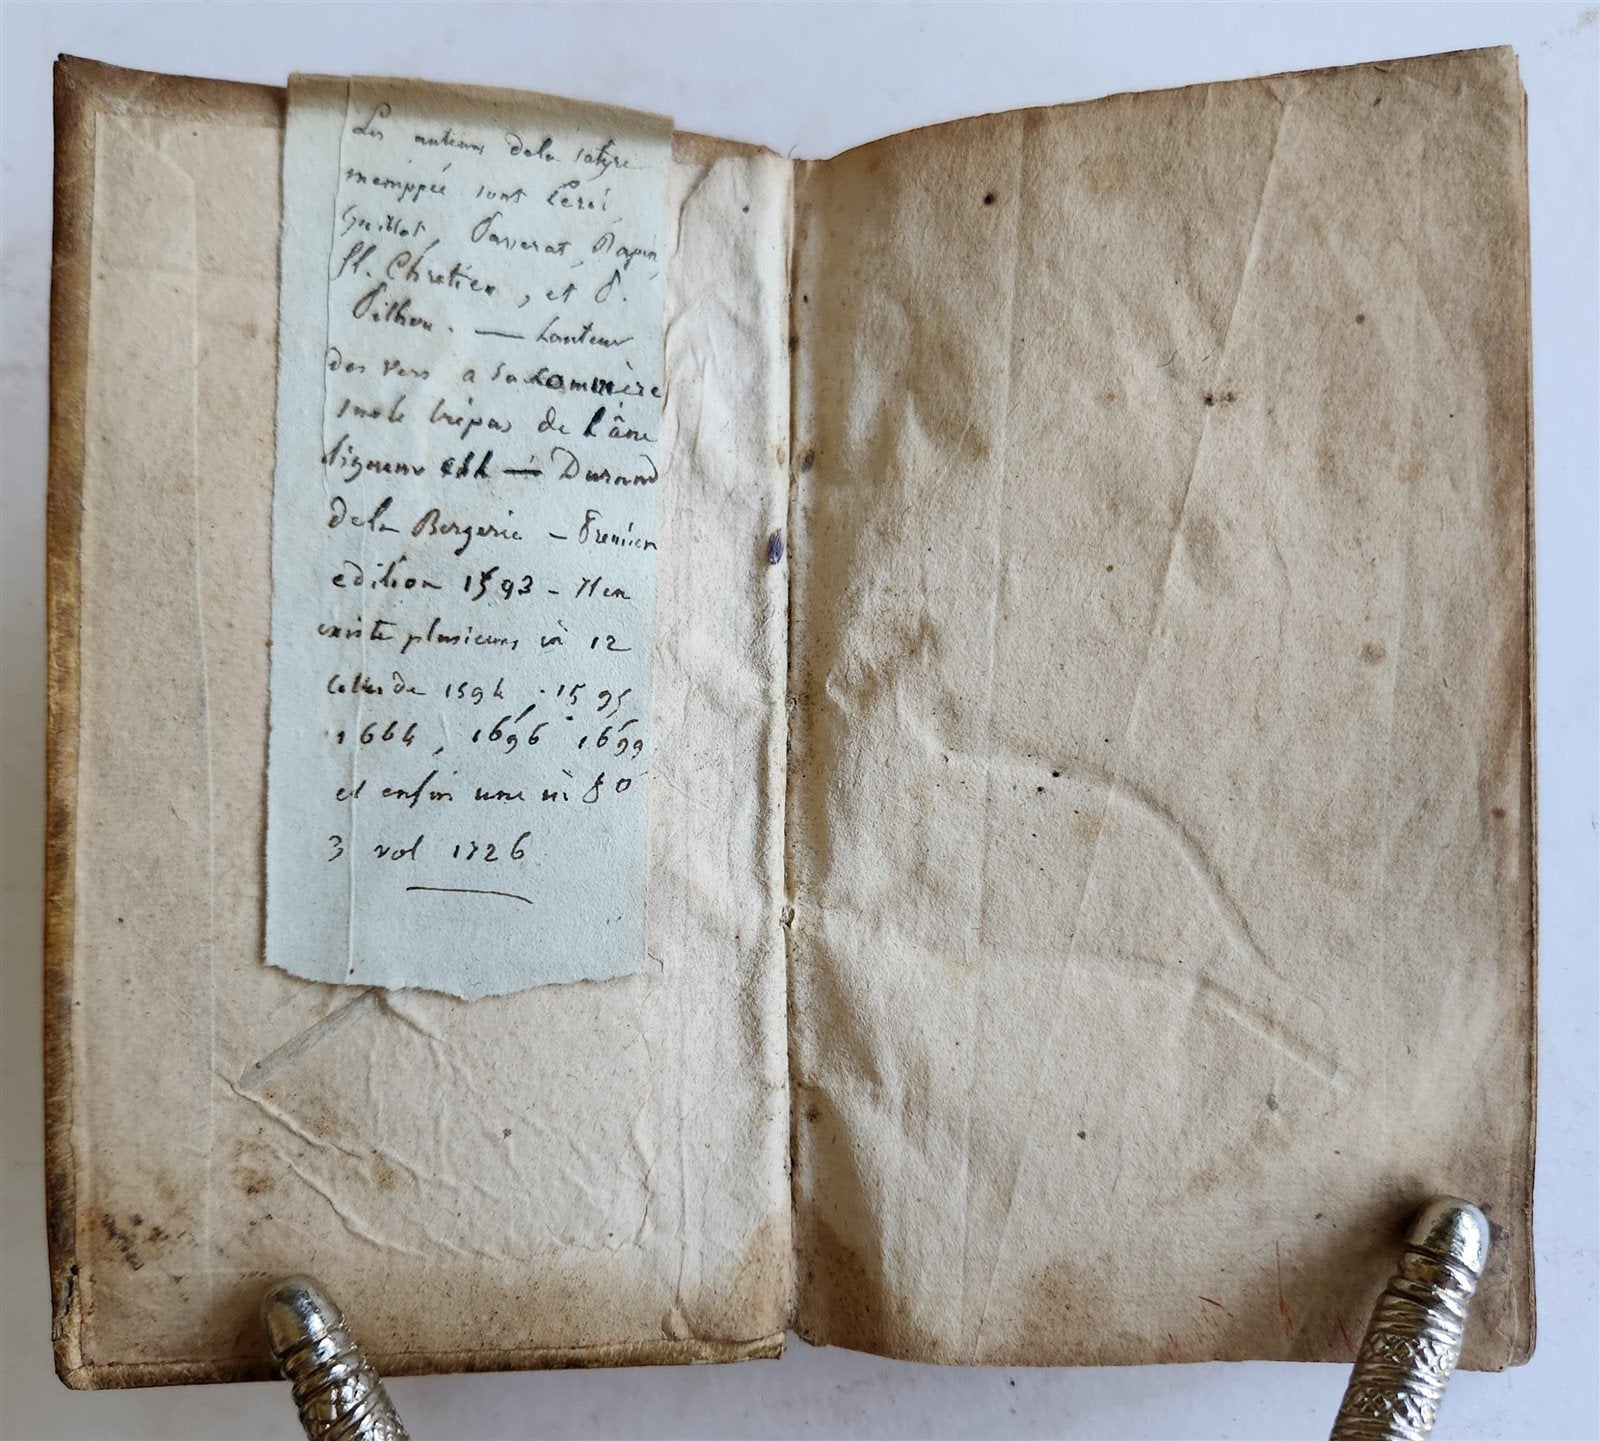 Les auteurs dela satyre
menippée sont Leroi,
Guillot, Passerat, Rapin,
fl. Chretien, et P.
Pithou. — Lauteur
des vers a sa commère
sur le trépas de l'âne
ligueur est — Durand
dela Bergerie — Premiere
edition 1593 - Il en
existe plusieurs in 12
celles de 1594, 1595
1664, 1696 1699
et enfin une in 8o
3 vol 1726